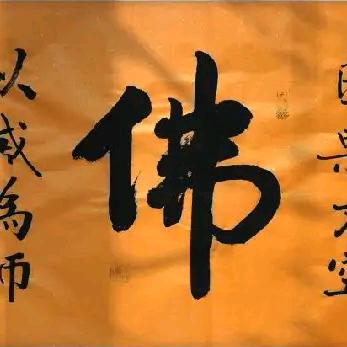 因果不空
佛
以戒為師